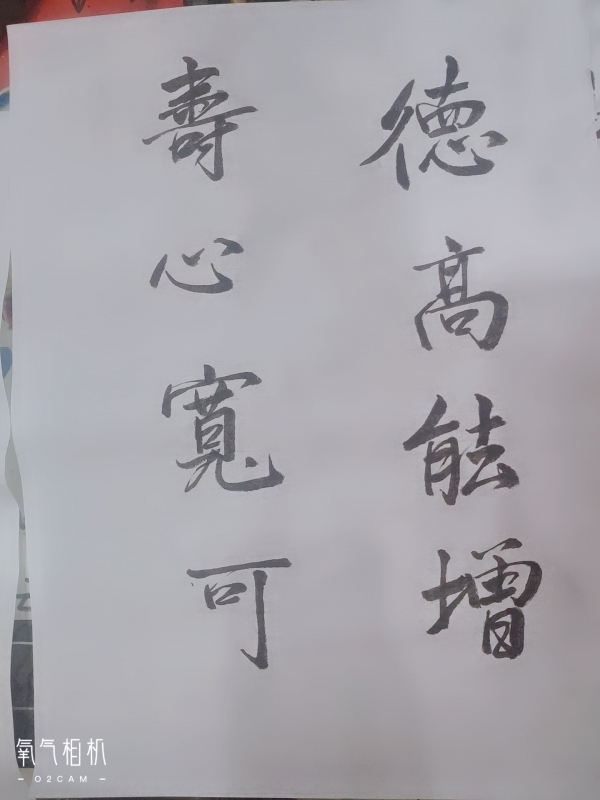 德高能增
壽心寬可
氧气相机
- O2CAM -